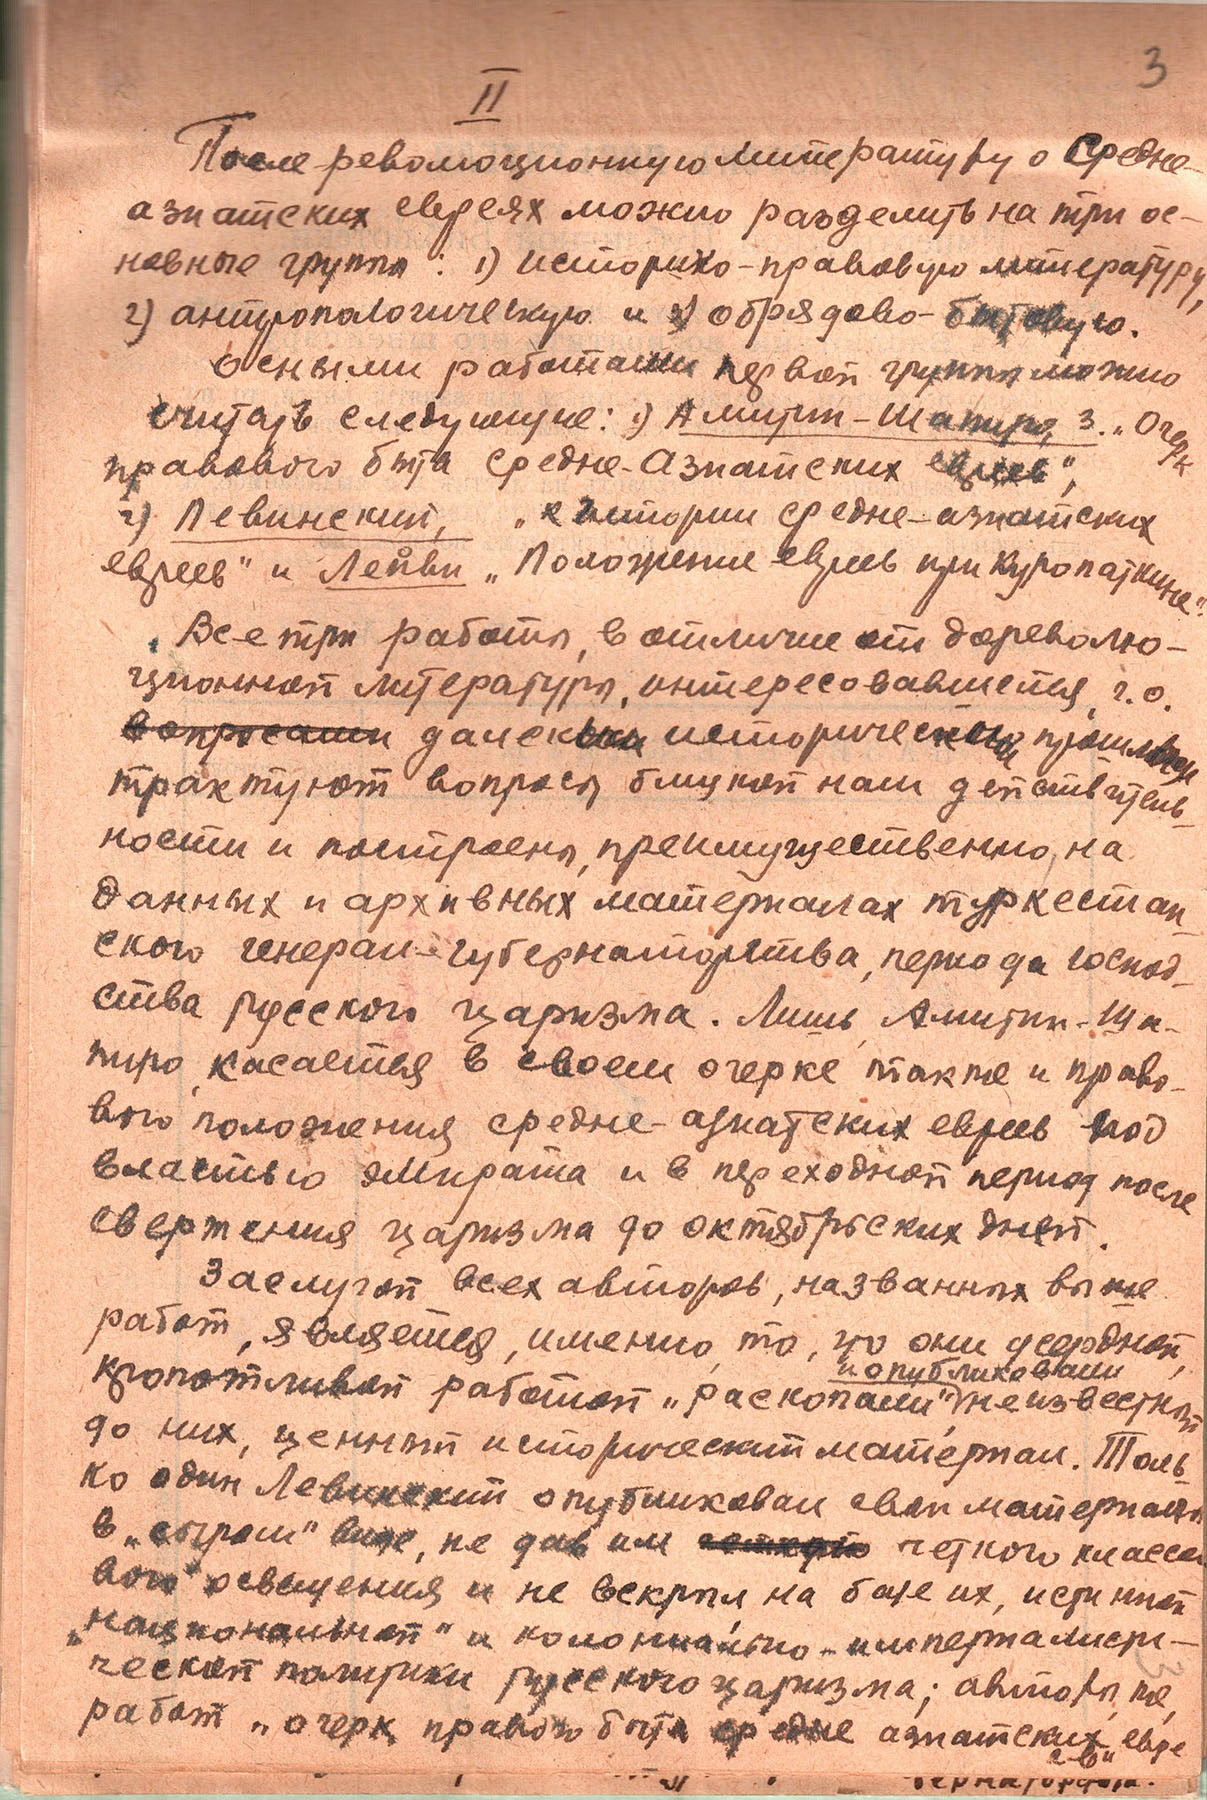 3
II
После-революционную литературу о Средне-
азиатских евреях можно разделить на три ос-
новные группы: 1) историко-правовую литературу,
2) антропологическую и 3) обрядово-бытовую.
Осными работами первой группы можно
считать следующие: 1) Амитин-Шапиро, З. „Очерк
правового быта Средне-Азиатских евреев",
2) Левинский, „к истории средне-азиатских
евреев" и Лейви „Положение евреев при Куропаткине".
Все три работы, в отличие от дореволю-
ционной литературы, интересовавшейся, г.о.
вопросами далеким историческим прошлым
трактуют вопросы близкой нам действитель-
ности и построены, преимущественно, на
данных и архивных материалах туркестан-
ского генерал-губернаторства, периода господ-
ства русского царизма. Лишь, Амитин-Ша-
пиро, касается в своем очерке также и право-
вого положения средне-азиатских евреев под
властью эмирата и в переходной период после
свержения царизма до октябрьских дней.
Заслугой всех авторов, названных выше
работ, является, именно, то, что они усердной,
и опубликовали
кропотливой работой „раскопали" неизвестный
до них, ценный исторический материал. Толь-
ко один Левинский опубликовал свои материалы
в „сыром" виде, не дав им четкого классо-
вого освещения и не вскрыл на базе их, истинной
„национальной" и колониально-империалисти-
ческой политики русского царизма; авторы, же,
работ „очерк правового быта средне азиатских евре
ев"